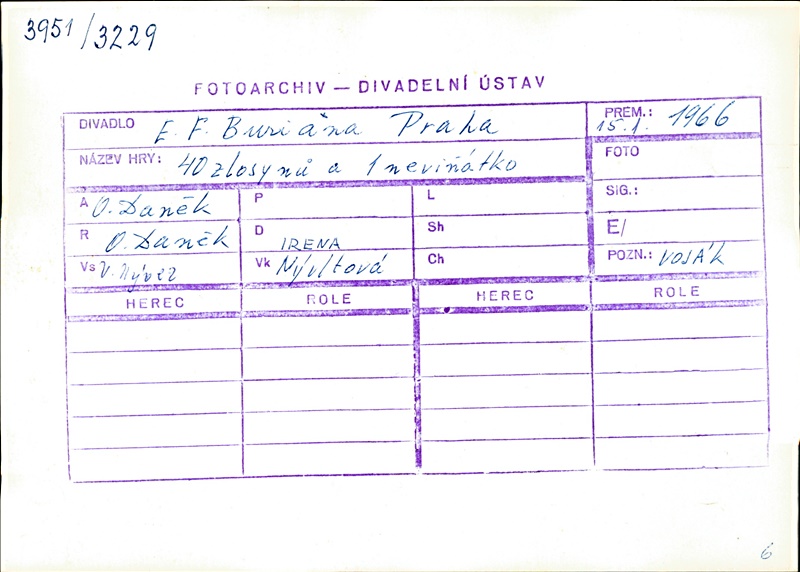 3951/3229
FOTOARCHIV — DIVADELNÍ ÚSTAV
DIVADLO E. F. Buriana Praha
PREM.: 15.1. 1966
NÁZEV HRY: 40 zlosynů a 1 neviňátko
FOTO
A O. Daněk P L SIG.:
R O. Daněk D IRENA Sh E/
Vs V. Nývlt Vk Nývltová Ch POZN.: VOSÁK
HEREC ROLE HEREC ROLE
6